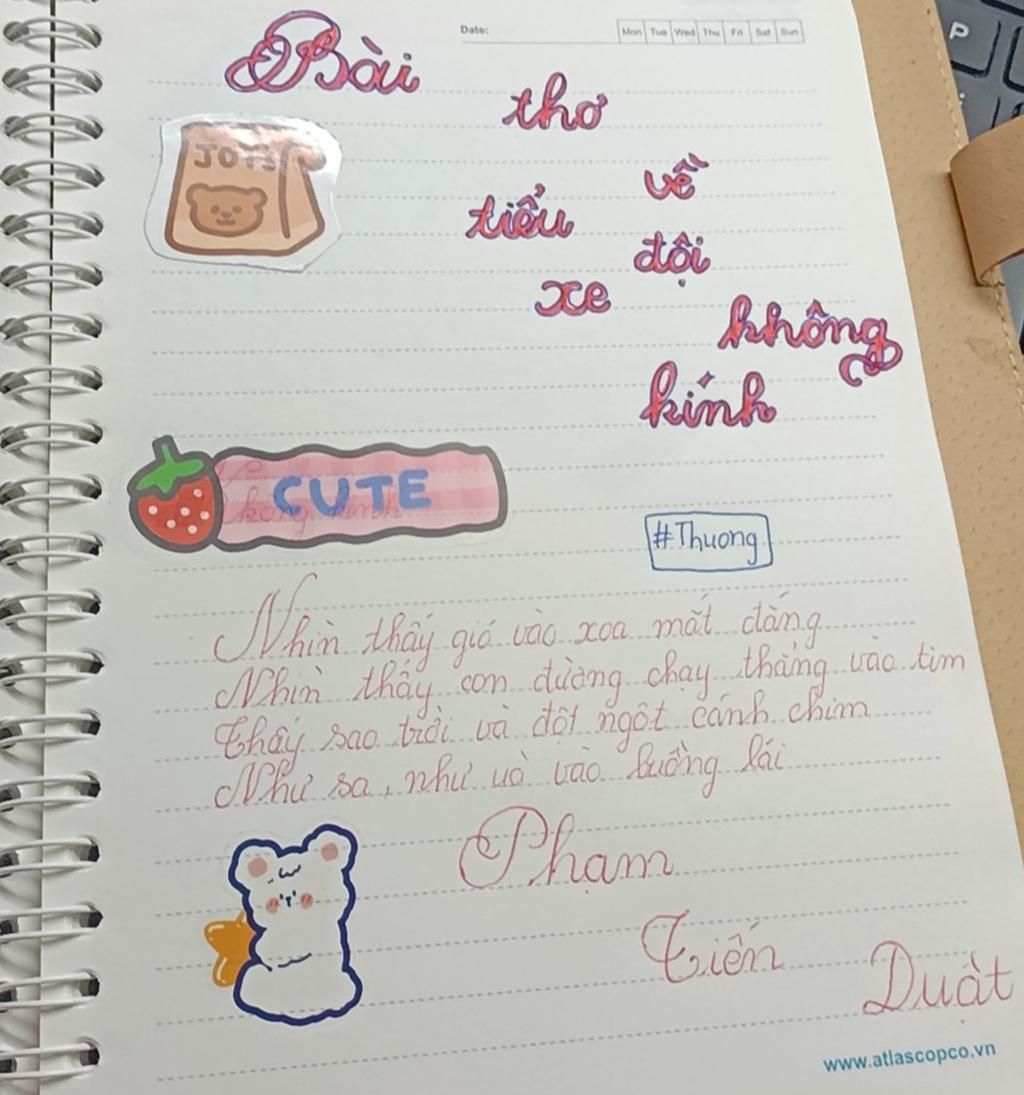 Date:
Mon Tue Wed Thu Fri Sat Sun
Bài
thơ
về
tiểu
đội
xe
không
kính
JOYS
CUTE
#Thuong
Nhìn thấy gió vào xoa mắt đắng
Nhìn thấy con đường chạy thẳng vào tim
Thấy sao trời và đột ngột cánh chim
Như sa, như ùa vào buồng lái
Phạm
Tiến
Duật
www.atlascopco.vn
P